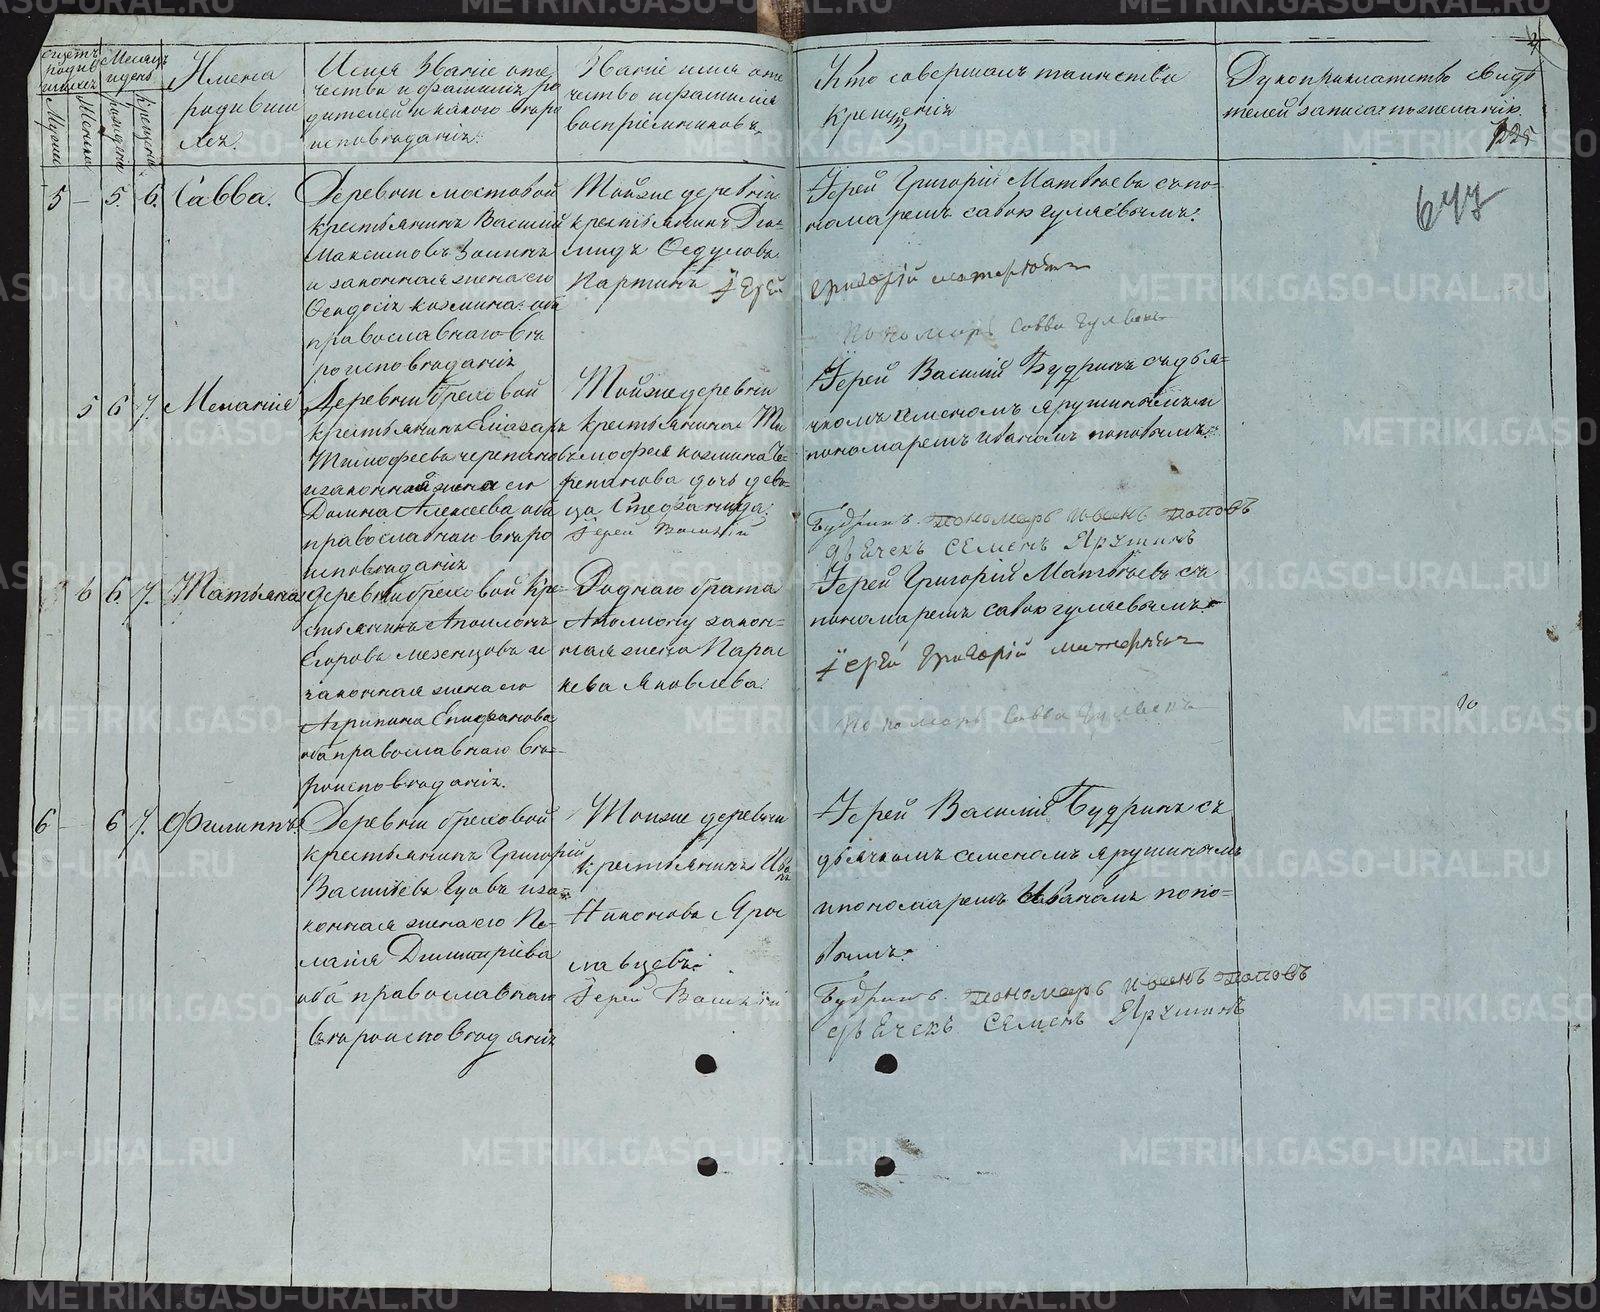 Счетъ родив
шихся
Мужескъ
Женска
Месяцъ и день
рожденія
крещенія
Имена
родивши
хся.
Имя Званіе оте
чество и фамилія ро
дителей и какого веро
исповѣданія:
Званіе имя оте
чество и фамилія
воспріемниковъ,
Кто совершалъ таинство
крещенія
Рукоприкладство свидѣ
телей записи по желанію.
225
647
5 — 5. 6. Савва.
Деревни мостовой
крестьянинъ Василий
Максимовъ Зоминъ
и законная жена его
Феодосія козмина: оба
православнаго вѣ
роисповѣданія
Тойже деревни
крестьянинъ Дио-
мидъ Федуловъ
Партинъ Іерей
Іерей Григорій Матвѣевъ съ по-
номаремъ савою гуляевымъ:
григорій матвѣевъ
пономарь Савва Гуляевъ
5 6 7. Меланія
Деревни бреховой
крестьянинъ Елиазаръ
Тимофеевъ черепановъ
и законная жена его
Домна Алексеева оба
православнаго вѣро
исповѣданія
Тойже деревни
крестьянина Ти
мофея козмина Че
репанова дочь деви
ца Стефанида:
Іерей Василій
Іерей Василий Будринъ съ дья-
чкомъ семеномъ ярушинымъ и
пономаремъ иваномъ поповымъ:
Будринъ. пономарь Иванъ поповъ
дьячекъ Семенъ Ярушинъ
6 6. 7. Татьяна
деревни бреховой кре-
стьянинъ Аполонъ
Егоровъ мезенцовъ и
законная жена его
Агрипина Епифанова
оба православнаго вѣ-
роисповѣданія.
Роднаго брата
Аполлону закон-
ная жена Парас
кева Яковлева.
Іерей Григорій Матвѣевъ съ
пономаремъ савою гуляевымъ
Іерей Григорій матвѣевъ
пономарь Савва Гуляевъ
6 — 6 7. Филиппъ.
Деревни бреховой
крестьянинъ Григорій
Васильевъ Гуовъ и за-
конная жена его Пе-
лагія Димитріева
оба православнаго
вѣроисповѣданія
Тойже деревни
крестьянинъ Иванъ
Никоновъ Яро
славцевъ:
Іерей Василій
Іерей Василій Будринъ съ
дьячкомъ семеномъ ярушинымъ
и пономаремъ Иваномъ попо-
вымъ:
Будринъ. пономарь Иванъ поповъ
дьячекъ Семенъ Ярушинъ
METRIKI.GASO-URAL.RU